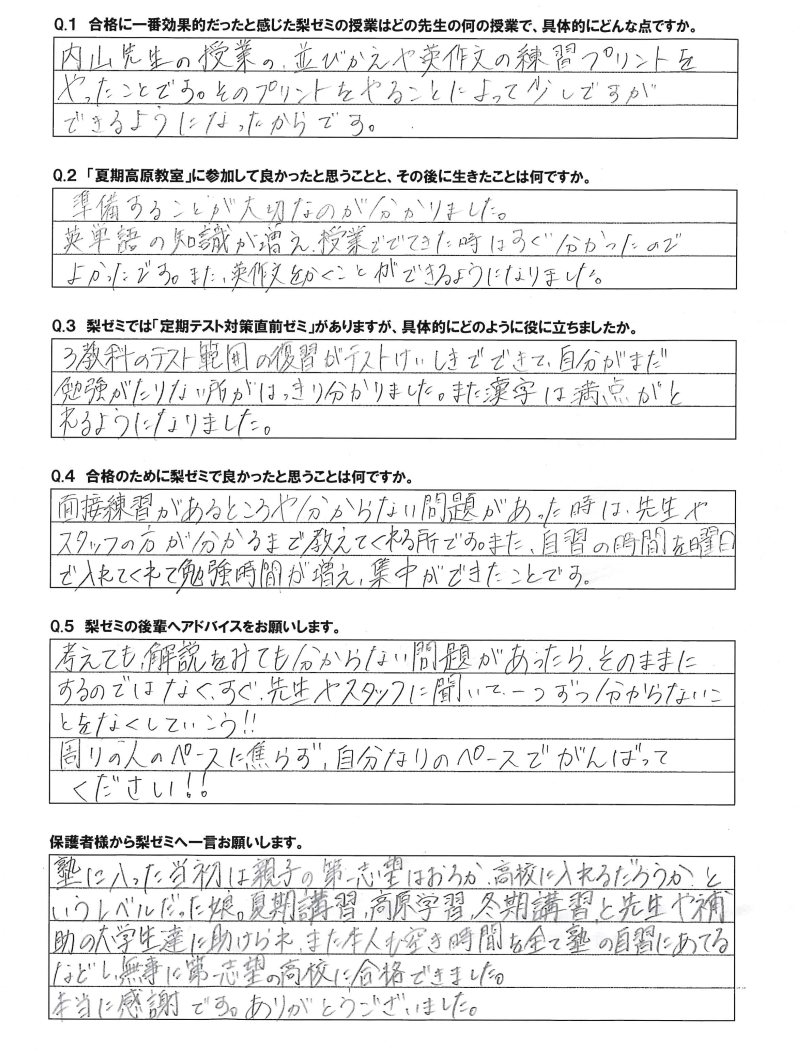 Q.1 合格に一番効果的だったと感じた梨ゼミの授業はどの先生の何の授業で、具体的にどんな点ですか。
内山先生の授業の、並びかえや英作文の練習プリントを
やったことです。そのプリントをやることによって少しですが
できるようになったからです。
Q.2 「夏期高原教室」に参加して良かったと思うことと、その後に生きたことは何ですか。
準備することが大切なのが分かりました。
英単語の知識が増え、授業ででてきた時はすぐ分かったので
よかったです。また、英作文をかくことができるようになりました。
Q.3 梨ゼミでは「定期テスト対策直前ゼミ」がありますが、具体的にどのように役に立ちましたか。
3教科のテスト範囲の復習がテストけいしきでできて、自分がまだ
勉強がたりない所がはっきり分かりました。また漢字は満点がと
れるようになりました。
Q.4 合格のために梨ゼミで良かったと思うことは何ですか。
面接練習があるところや分からない問題があった時は、先生や
スタッフの方が分かるまで教えてくれる所です。また、自習の時間を曜日
で入れてくれて勉強時間が増え、集中ができたことです。
Q.5 梨ゼミの後輩へアドバイスをお願いします。
考えても、解説をみても分からない問題があったら、そのままに
するのではなく、すぐ、先生やスタッフに聞いて、一つずつ分からないこ
とをなくしていこう!!
周りの人のペースに焦らず、自分なりのペースでがんばって
ください!!
保護者様から梨ゼミへ一言お願いします。
塾に入った当初は親子の第一志望はおろか、高校に入れるだろうか、と
いうレベルだった娘。夏期講習、高原学習、冬期講習、と先生や補
助の大学生達に助けられ、また本人も空き時間を全て塾の自習にあてる
などし、無事に第一志望の高校に合格できました。
本当に感謝です。ありがとうございました。